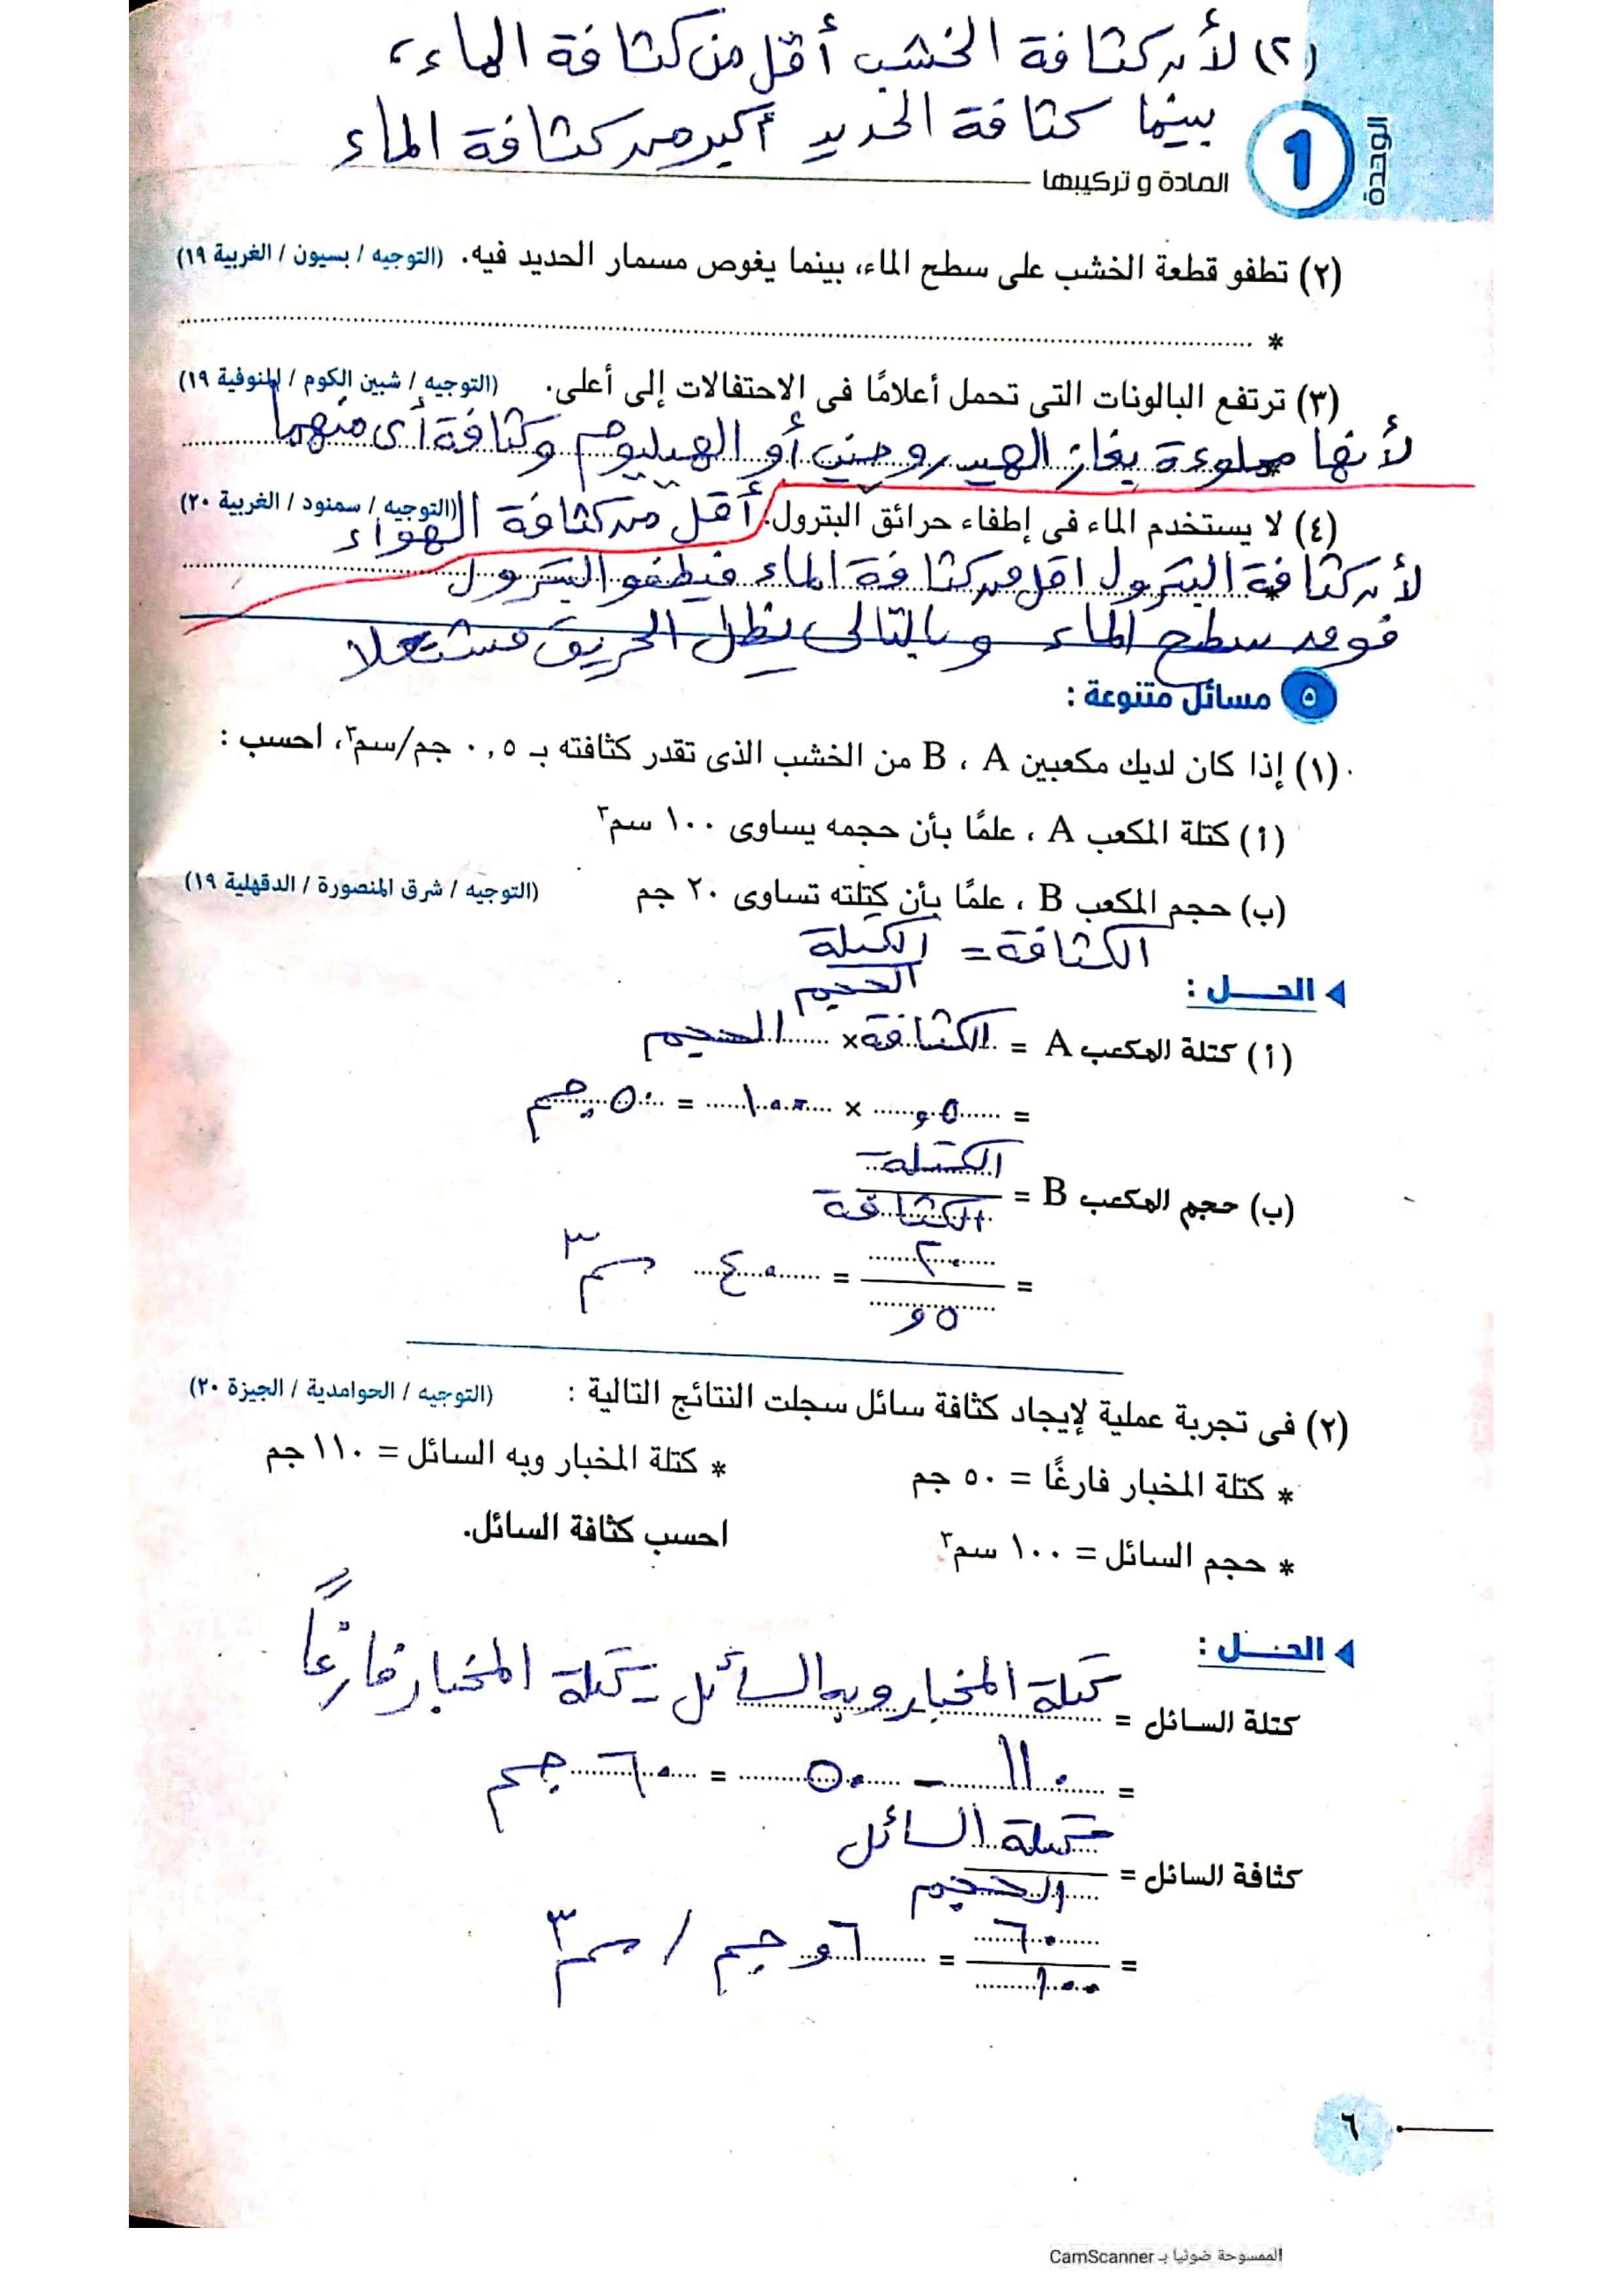 (٢) لأن كثافة الخشب أقل من كثافة الماء،
بينما كثافة الحديد أكبر من كثافة الماء
الوحدة
1
المادة و تركيبها
(٢) تطفو قطعة الخشب على سطح الماء، بينما يغوص مسمار الحديد فيه. (التوجيه / بسيون / الغربية ١٩)
*
(٣) ترتفع البالونات التى تحمل أعلامًا فى الاحتفالات إلى أعلى. (التوجيه / شبين الكوم / المنوفية ١٩)
* لأنها مملوءة بغاز الهيدروجين أو الهيليوم وكثافة أى منهما
أقل من كثافة الهواء
(٤) لا يستخدم الماء فى إطفاء حرائق البترول. (التوجيه / سمنود / الغربية ٢٠)
* لأن كثافة البترول اقل من كثافة الماء فيطفو البترول
فوق سطح الماء وبالتالى يظل الحريق مشتعلا
٥ مسائل متنوعة :
(١) إذا كان لديك مكعبين A ، B من الخشب الذى تقدر كثافته بـ ٠,٥ جم/سم٣، احسب :
(أ) كتلة المكعب A ، علمًا بأن حجمه يساوى ١٠٠ سم٣
(ب) حجم المكعب B ، علمًا بأن كتلته تساوى ٢٠ جم (التوجيه / شرق المنصورة / الدقهلية ١٩)
الكثافة = الكتلة
الحجم
الحـــل :
(أ) كتلة المكعب A = الكثافة × الحجم
= ٥و × ١٠٠ = ٥٠ جم
(ب) حجم المكعب B = الكتلة
الكثافة
= ٢٠ = ٤٠ سم٣
٥و
(٢) فى تجربة عملية لإيجاد كثافة سائل سجلت النتائج التالية : (التوجيه / الحوامدية / الجيزة ٢٠)
* كتلة المخبار فارغًا = ٥٠ جم * كتلة المخبار وبه السائل = ١١٠ جم
* حجم السائل = ١٠٠ سم٣ احسب كثافة السائل.
الحـــل :
كتلة السائل = كتلة المخبار وبه السائل - كتلة المخبار فارغاً
= ١١٠ - ٥٠ = ٦٠ جم
كثافة السائل = كتلة السائل
الحجم
= ٦٠ = ٦و جم / سم٣
١٠٠
٦
الممسوحة ضوئيا بـ CamScanner